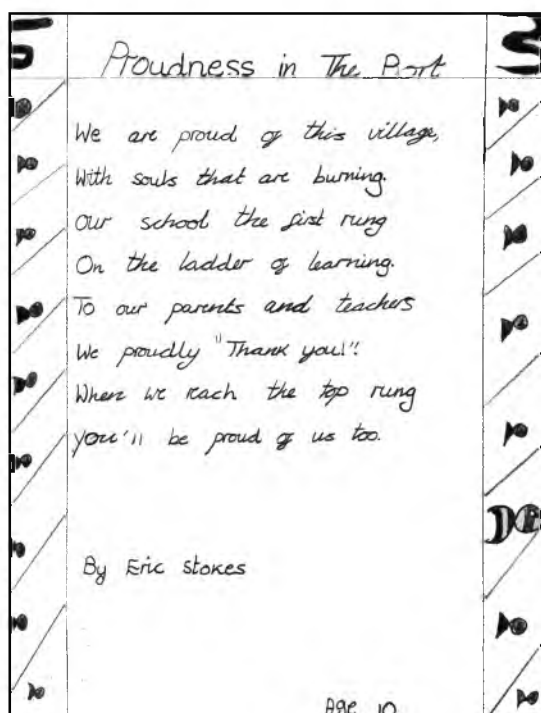 Proudness in The Port
We are proud of this village,
With souls that are burning.
Our school the first rung
On the ladder of learning.
To our parents and teachers
We proudly "Thank you!"!
When we reach the top rung
you'll be proud of us too.
By Eric Stokes
Age 10